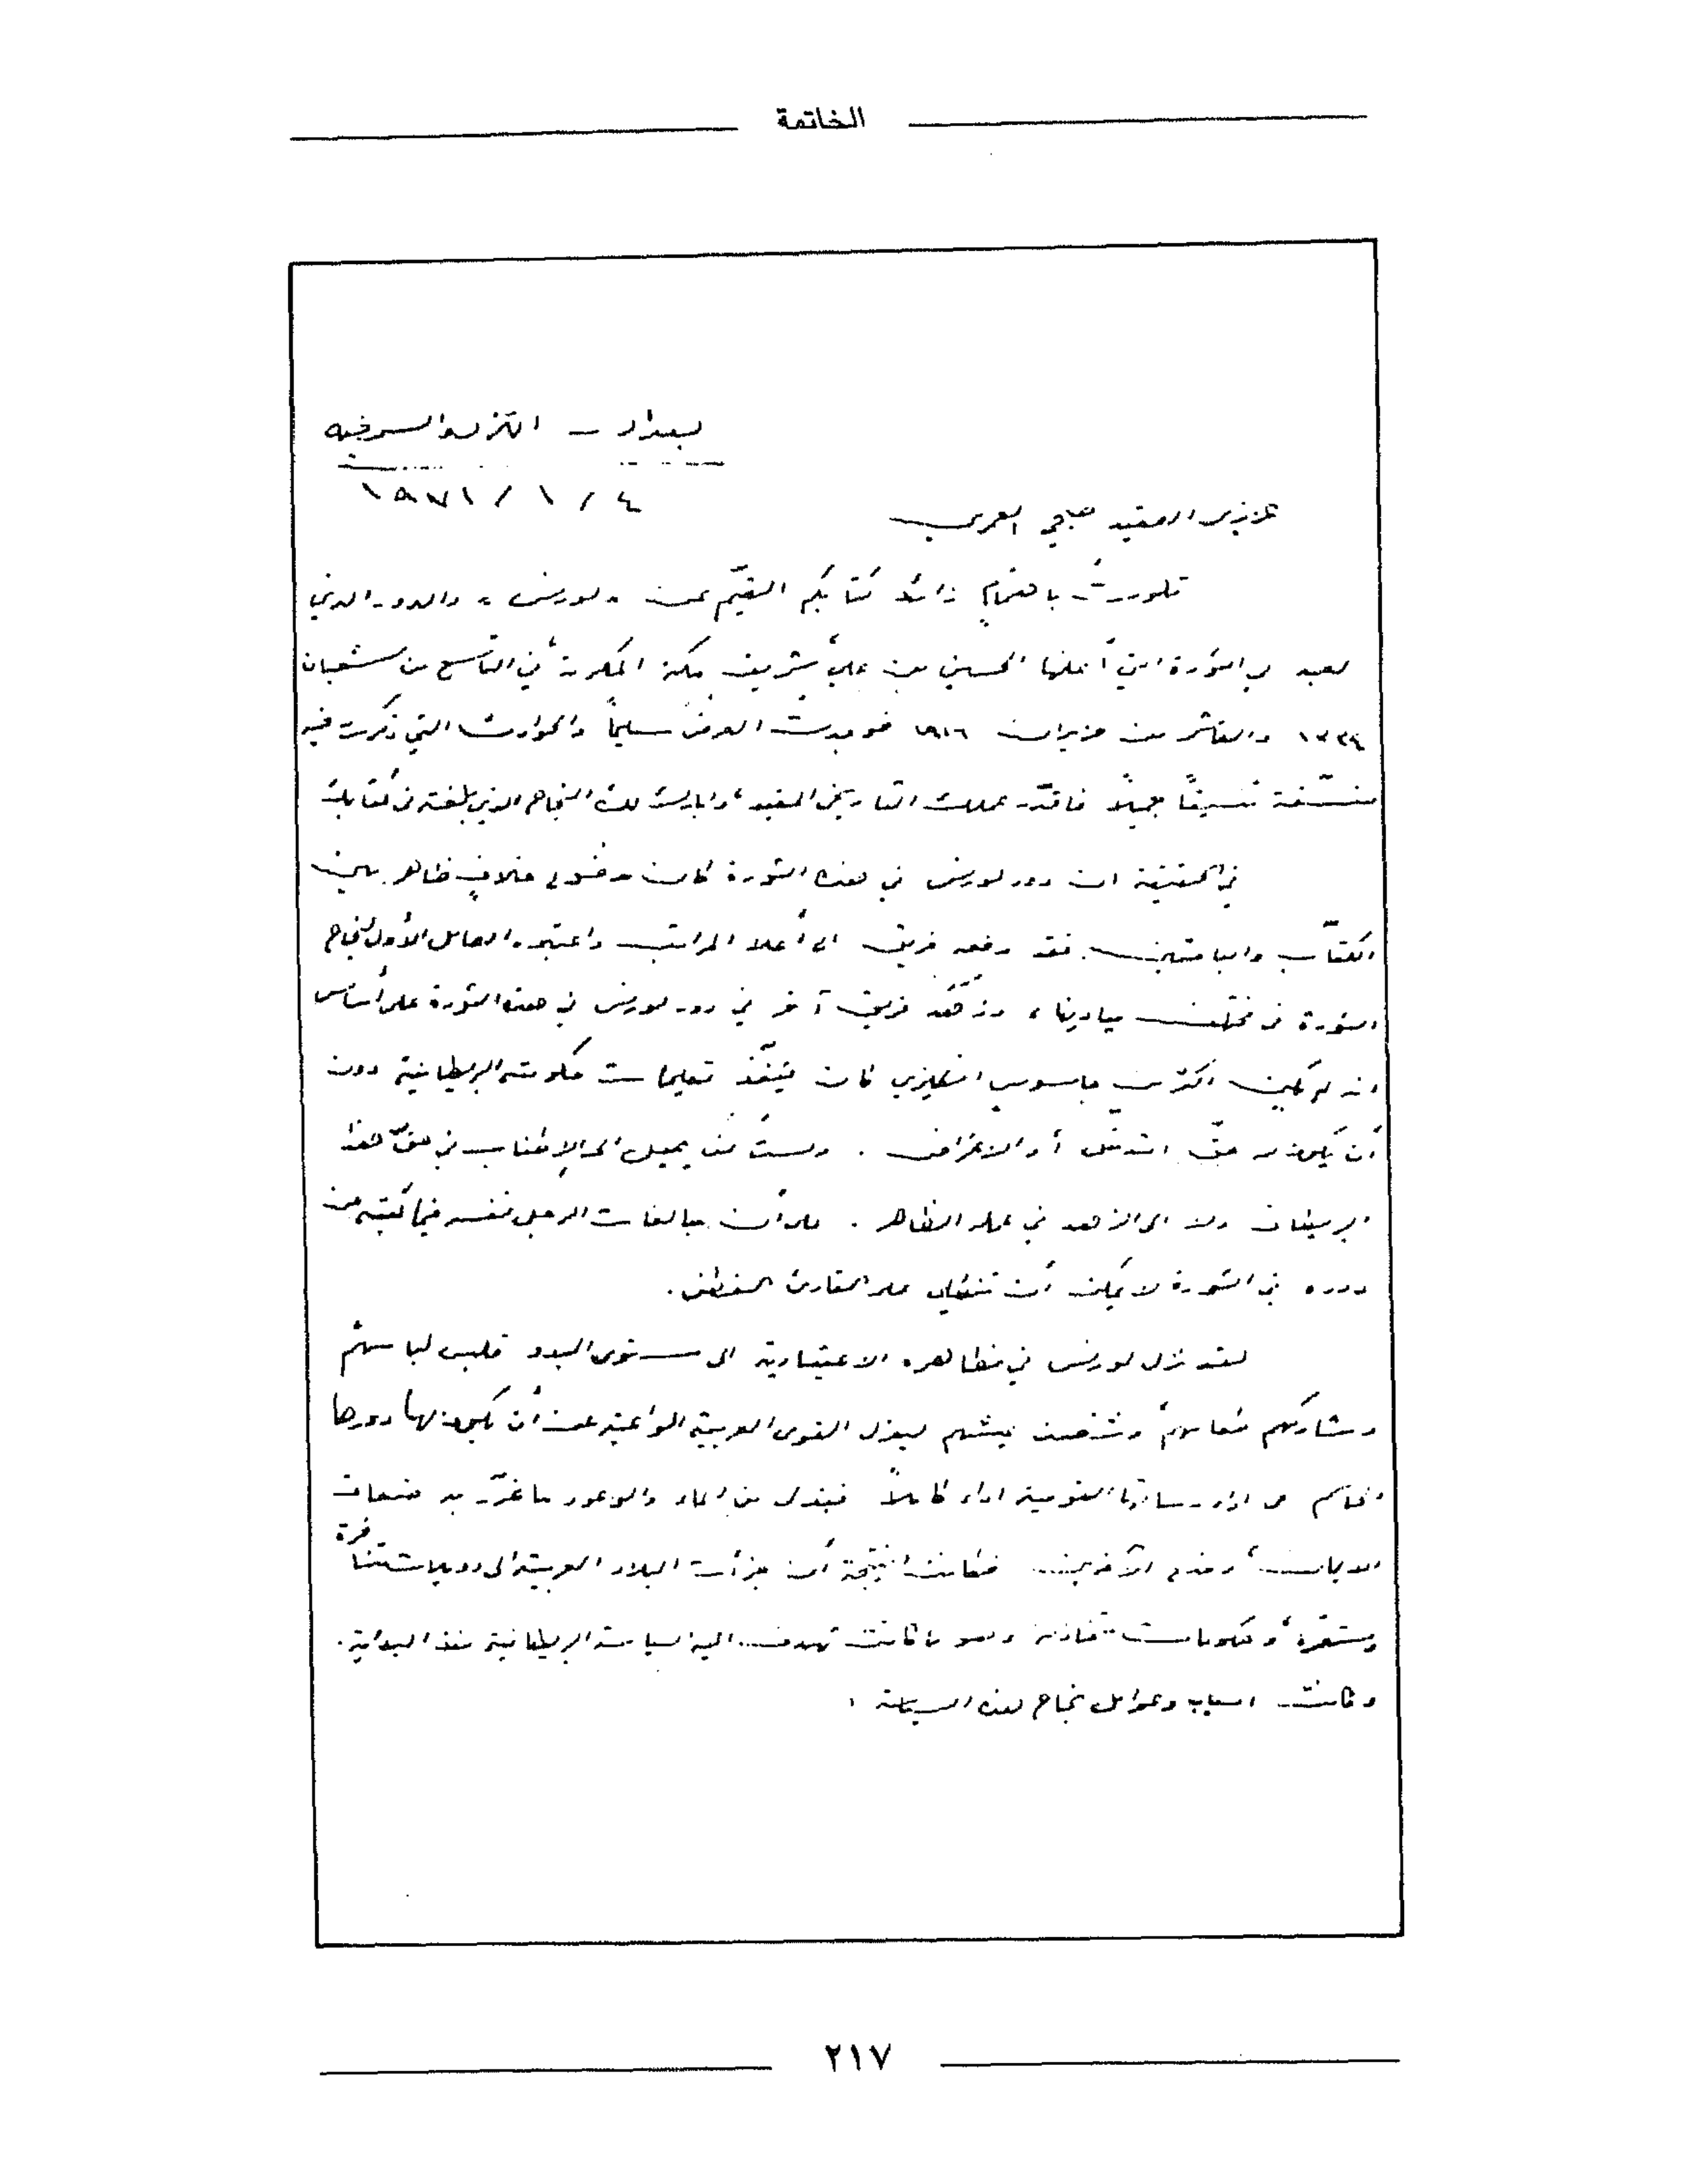 الخاتمة
بغداد -
٤ / ١ / ١٩٧١
عزيزي العقيد صبحي العمري
تلوت باهتمام زائد كتابكم القيّم عن "لورنس" والدور الذي
لعبه في الثورة التي أعلنها الحسين بن علي شريف مكة المكرمة في التاسع من شعبان
١٣٣٤ والعاشر من حزيران ١٩١٦ فوجدت العرض سليماً والحوادث التي ذكرت فيه
منسّقة تنسيقاً جميلاً فاقدّر عملك التاريخي المفيد، وابارك لك النجاح الذي بلغته في كتابك
في الحقيقة ان دور لورنس في هذه الثورة كان موضع خلافٍ ظاهر بين
الكتّاب والباحثين. فقد رفعه فريق الى أعلا المراتب واعتبره العامل الأول لنجاح
الثورة في مختلف ميادينها، وزهّد فريق آخر في دور لورنس في هذه الثورة على أساس
انه لم يكن اكثر من جاسوس انكليزي كان ينفّذ تعليمات حكومته البريطانية دون
أن يكون له حقّ التدخّل أو الاعتراض. ولستُ ممن يميل الى الإطناب في حقّ هذا
البريطاني ولا الى الزهد في عمله الظاهر. على أن مبالغات الرجل نفسه فيما كتبه عن
دوره في الثورة لا يمكن أن تنطلي على القارئ الفطن.
لقد نزل لورنس في مظاهره الاعتيادية الى مستوى البدو فلبس لباسهم
وشاركهم طعامهم وشظف عيشهم ليعزل القوى العربية الواعية عن أن يكون لها دورها
الحاسم في اداء رسالتها القومية اداء كاملاً فبذل من المال والوعود ما غرّر به ضعاف
الايمان، وخدع الآخرين. فكانت النتيجة أن جزأت البلاد العربية الى دويلات متنافرة
ومستعمرة، وحكومات متخاذلة وهو ما كانت تهدف اليه السياسة البريطانية منذ البداية.
وكانت اسباب وعوامل نجاح هذه السياسة :
٢١٧